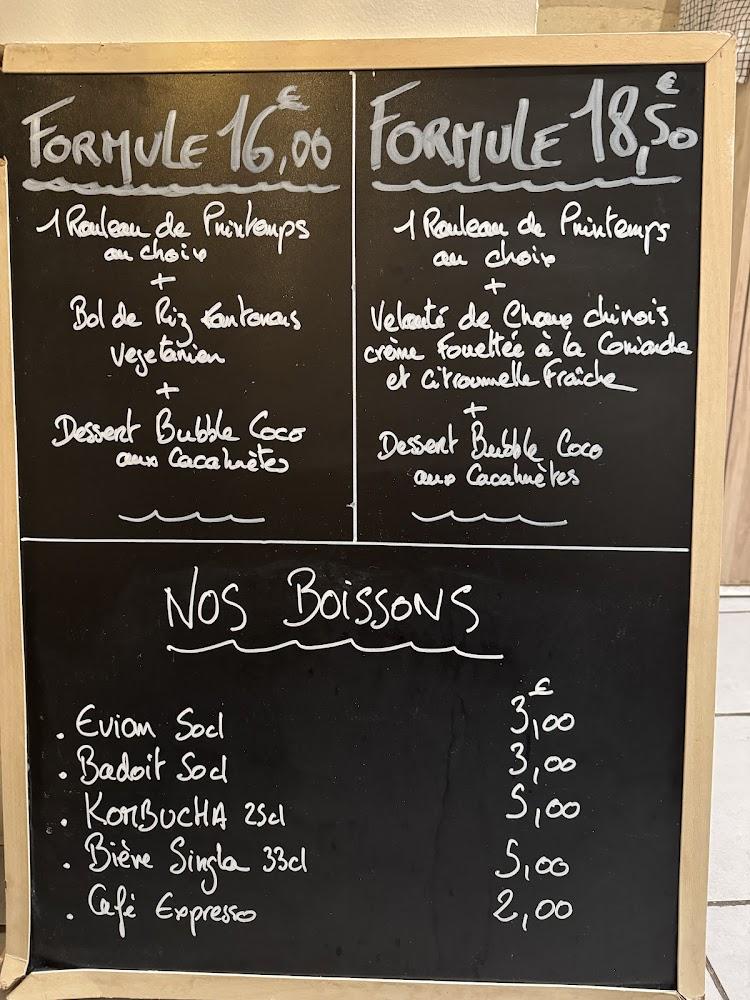 FORMULE 16,00€
1 Rouleau de Printemps
au choix
+
Bol de Riz Cantonais
Vegetarien
+
Dessert Bubble Coco
aux Cacahuètes
FORMULE 18,50€
1 Rouleau de Printemps
au choix
+
Velouté de Choux chinois
crème Fouettée à la Coriandre
et citronnelle Fraîche
+
Dessert Bubble Coco
aux Cacahuètes
NOS BOISSONS
. Evian 50cl 3,00€
. Badoit 50cl 3,00
. KOMBUCHA 25cl 5,00
. Bière Singha 33cl 5,00
. Café Expresso 2,00